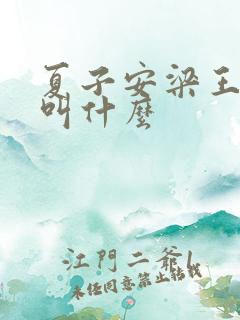 夏子安梁王
叫什麼
江門二爺l
未經同意禁止轉載